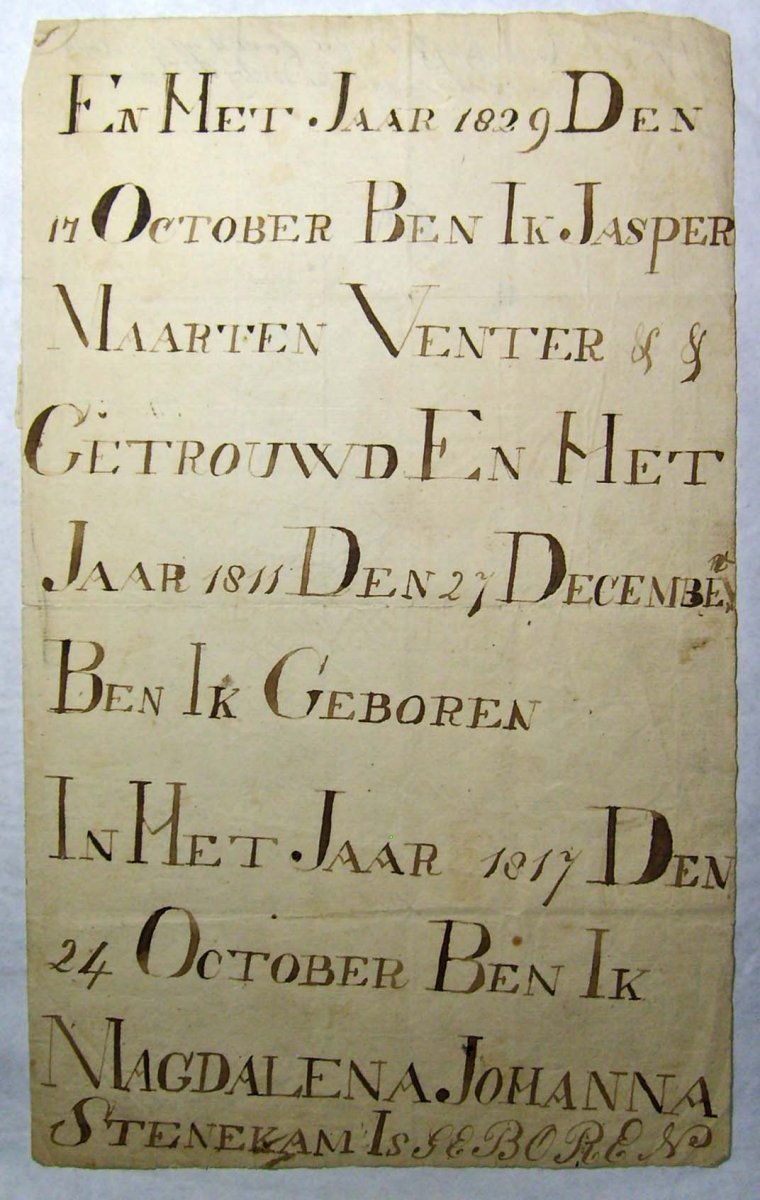 En Het Jaar 1829 Den
17 October Ben Ik Jasper
Maarten Venter & &
Getrouwd En Het
Jaar 1811 Den 27 December
Ben Ik Geboren
In Het Jaar 1817 Den
24 October Ben Ik
Magdalena Johanna
Stenekam Is GEBOREN